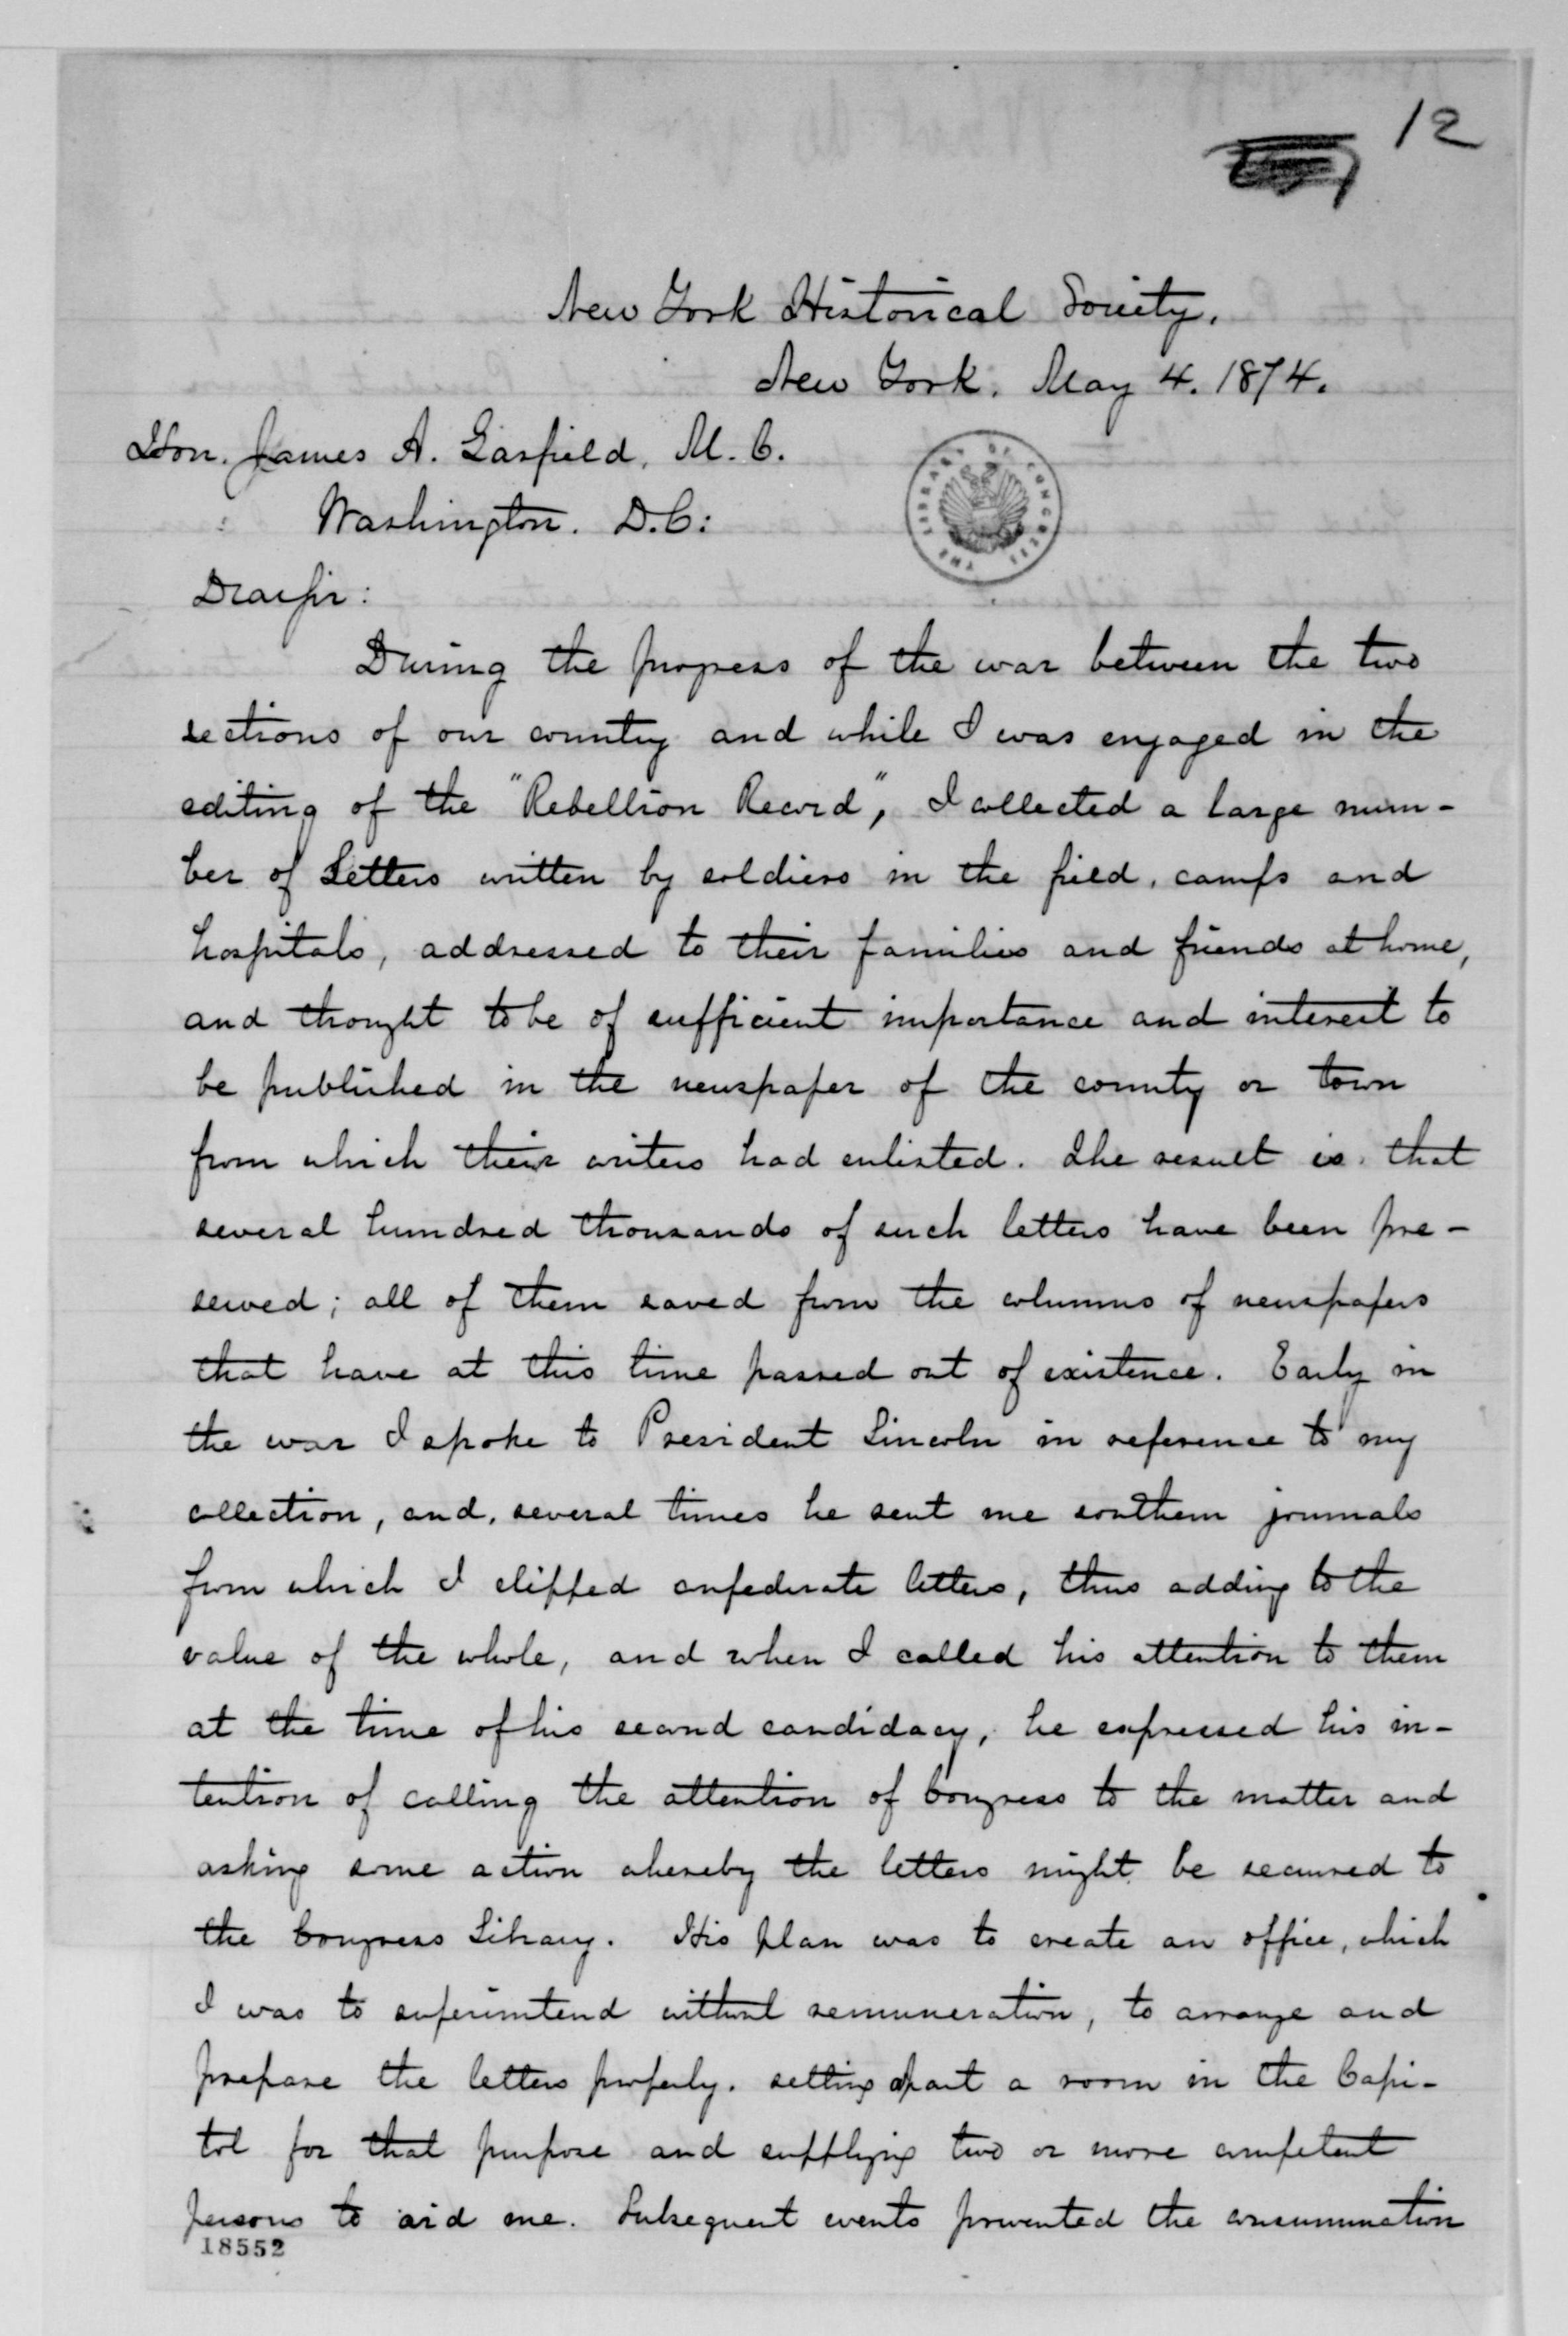 12
New York Historical Society.
New York. May 4. 1874.
Hon. James A. Garfield, M. C.
THE LIBRARY OF CONGRESS
Washington. D.C:
Dear sir:
During the progress of the war between the two
sections of our country and while I was engaged in the
editing of the "Rebellion Record", I collected a large num-
ber of Letters written by soldiers in the field, camps and
hospitals, addressed to their families and friends at home,
and thought to be of sufficient importance and interest to
be published in the newspaper of the county or town
from which their writers had enlisted. The result is that
several hundred thousands of such letters have been pre-
served; all of them saved from the columns of newspapers
that have at this time passed out of existence. Early in
the war I spoke to President Lincoln in reference to my
collection, and, several times he sent me southern journals
from which I clipped confederate letters, thus adding to the
value of the whole, and when I called his attention to them
at the time of his second candidacy, he expressed his in-
tention of calling the attention of Congress to the matter and
asking some action whereby the letters might be secured to
the Congress Library. His plan was to create an office, which
I was to superintend without remuneration, to arrange and
prepare the letters properly, setting apart a room in the Capi-
tol for that purpose and supplying two or more competent
persons to aid me. Subsequent events prevented the consummation
18552